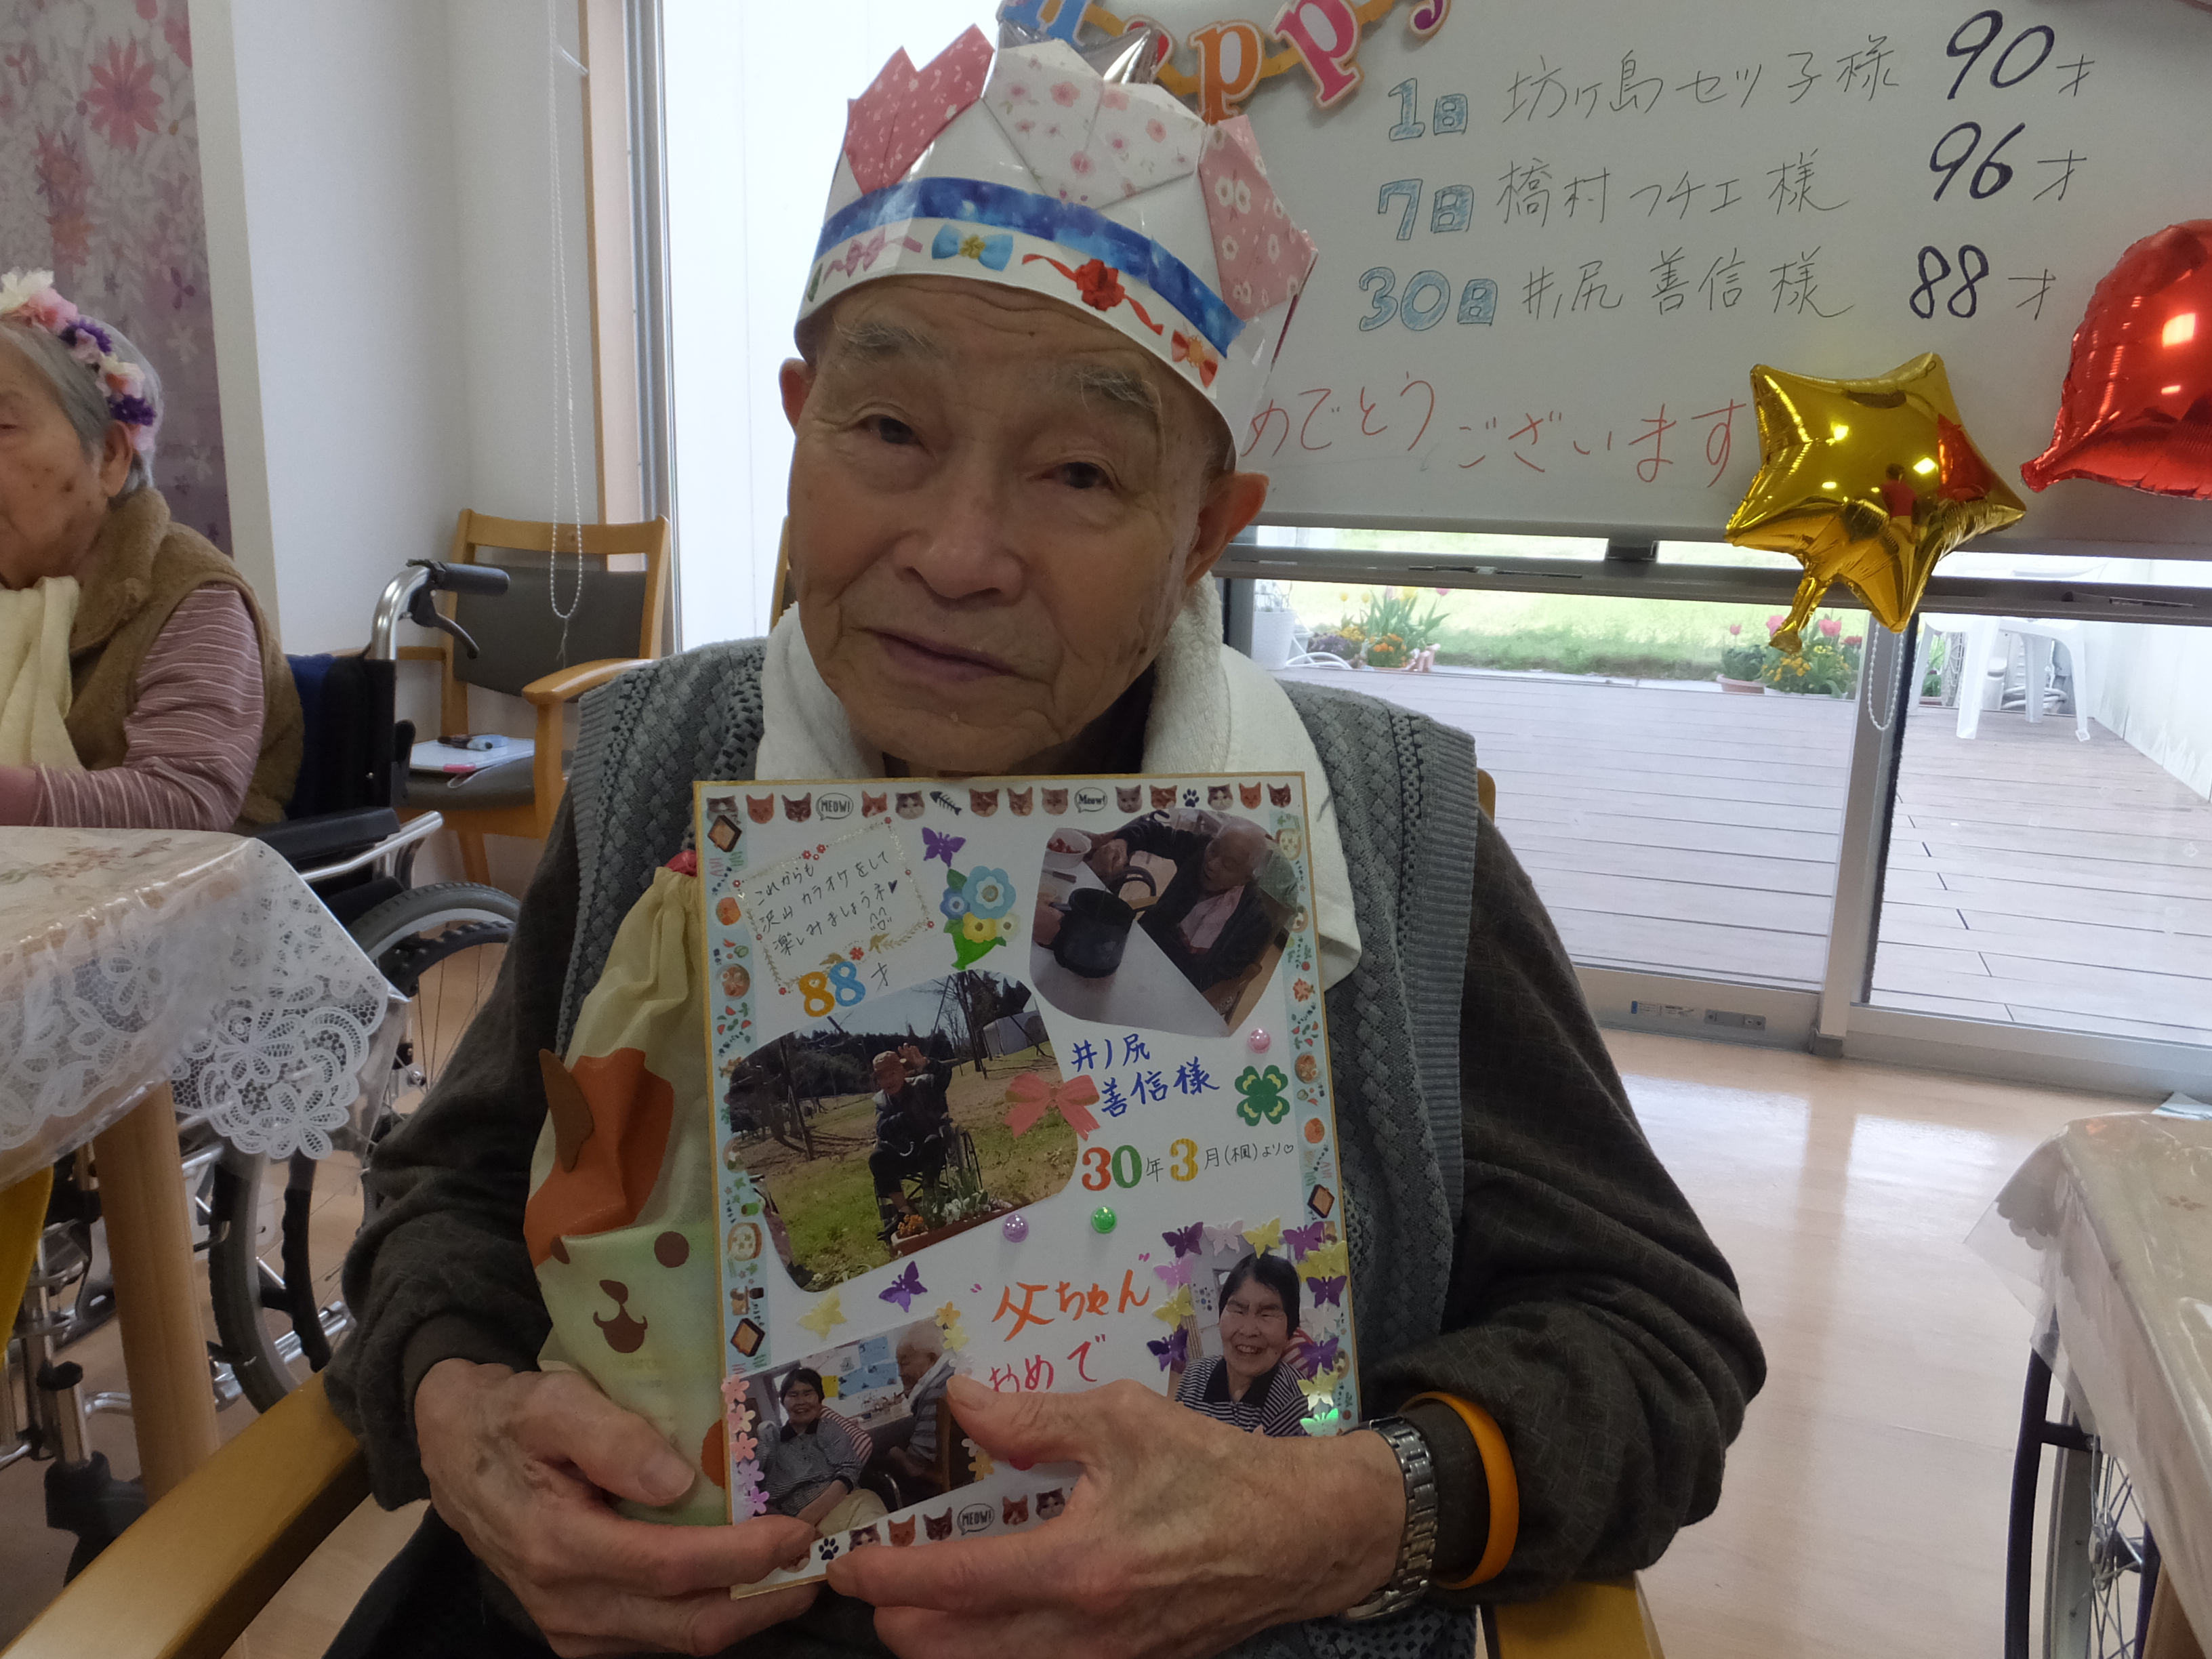 Happy
1日 坊ヶ島セツ子様 90才
7日 橋村フチエ様 96才
30日 井ノ尻善信様 88才
めでとうございます
MEOW!
Meow!
これからも
沢山カラオケをして
楽しみましょうネ♥
88才
井ノ尻
善信様
30年3月(楓)より♡
"父ちゃん"
おめで
MEOW!